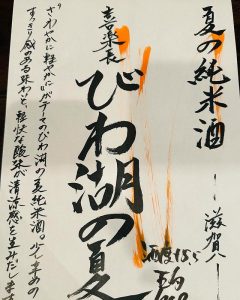 夏の純米酒
― 滋賀 ―
喜楽長
びわ湖の夏
"さわやかに軽やかに"がテーマのびわ湖の夏純米酒。少し辛めの
すっきり感のある味わいと、軽快な酸味が清涼感を生みだします